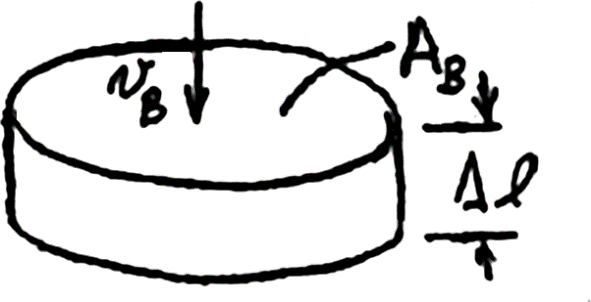 v_B
A_B
Δl